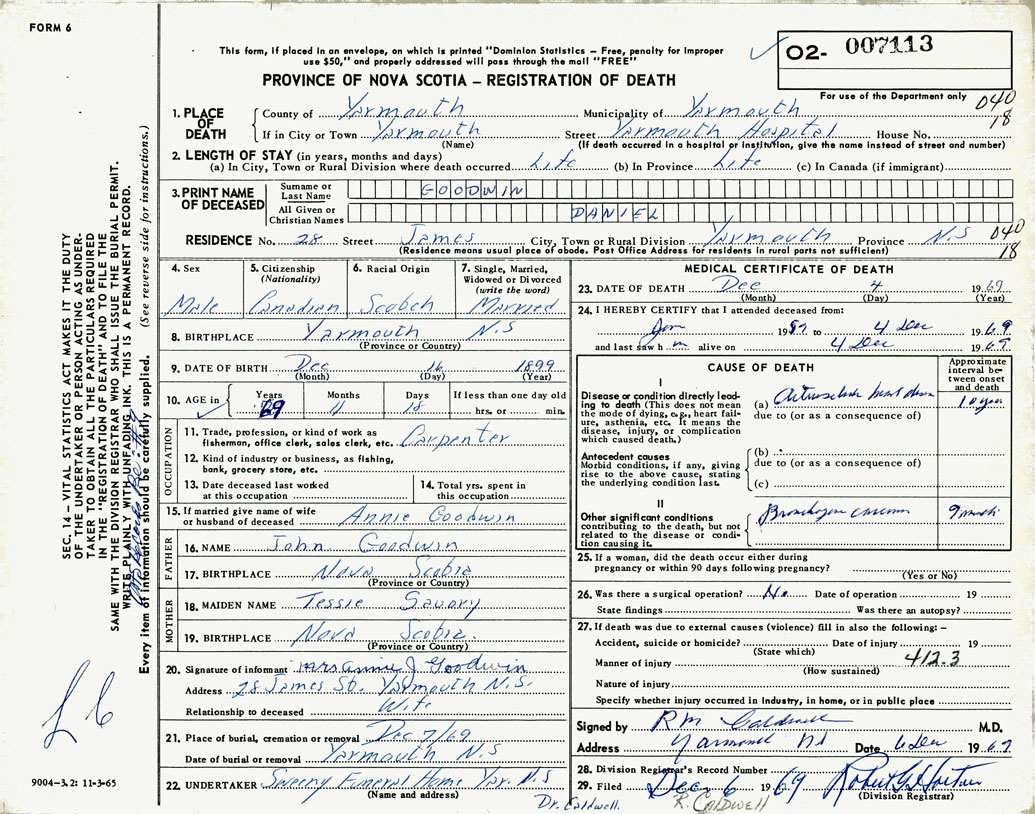 FORM 6
This form, if placed in an envelope, on which is printed "Dominion Statistics – Free, penalty for improper
use $50," and properly addressed will pass through the mail "FREE"
PROVINCE OF NOVA SCOTIA – REGISTRATION OF DEATH
O2- 007113
For use of the Department only
040
18
1. PLACE OF DEATH
County of Yarmouth Municipality of Yarmouth
If in City or Town Yarmouth Street Yarmouth Hospital House No.
(Name) (If death occurred in a hospital or institution, give the name instead of street and number)
2. LENGTH OF STAY (in years, months and days)
(a) In City, Town or Rural Division where death occurred Life (b) In Province Life (c) In Canada (if immigrant)
3. PRINT NAME OF DECEASED
Surname or Last Name GOODWIN
All Given or Christian Names DANIEL
RESIDENCE No. 28 Street James City, Town or Rural Division Yarmouth Province N.S
(Residence means usual place of abode. Post Office Address for residents in rural parts not sufficient)
040
18
4. Sex Male
5. Citizenship (Nationality) Canadian
6. Racial Origin Scotch
7. Single, Married, Widowed or Divorced (write the word) Married
8. BIRTHPLACE Yarmouth N.S
(Province or Country)
9. DATE OF BIRTH Dec 16 1899
(Month) (Day) (Year)
10. AGE in Years 69 Months 11 Days 18 If less than one day old hrs. or min.
OCCUPATION
11. Trade, profession, or kind of work as
fisherman, office clerk, sales clerk, etc. Carpenter
12. Kind of industry or business, as fishing,
bank, grocery store, etc.
13. Date deceased last worked
at this occupation
14. Total yrs. spent in
this occupation
15. If married give name of wife
or husband of deceased Annie Goodwin
FATHER
16. NAME John Goodwin
17. BIRTHPLACE Nova Scotia
(Province or Country)
MOTHER
18. MAIDEN NAME Tessie Savary
19. BIRTHPLACE Nova Scotia.
(Province or Country)
20. Signature of informant Mrs Annie J. Goodwin
Address 28 James St. Yarmouth N.S.
Relationship to deceased Wife
21. Place of burial, cremation or removal Dec 7/69
Date of burial or removal Yarmouth N.S
22. UNDERTAKER Sweeny Funeral Home Yar. N.S
(Name and address)
MEDICAL CERTIFICATE OF DEATH
23. DATE OF DEATH Dec 4 1969
(Month) (Day) (Year)
24. I HEREBY CERTIFY that I attended deceased from:
Jan 19 to 4 Dec 1969
and last saw h m alive on 4 Dec 1969.
CAUSE OF DEATH
Approximate interval between onset and death
I
Disease or condition directly leading
to death (This does not mean
the mode of dying, e.g., heart failure,
asthenia, etc. It means the
disease, injury, or complication
which caused death.)
(a) heart 10 years
due to (or as a consequence of)
Antecedent causes
Morbid conditions, if any, giving
rise to the above cause, stating
the underlying condition last.
(b)
due to (or as a consequence of)
(c)
II
Other significant conditions
contributing to the death, but not
related to the disease or condition
causing it.
9 months
25. If a woman, did the death occur either during
pregnancy or within 90 days following pregnancy?
(Yes or No)
26. Was there a surgical operation? No Date of operation 19
State findings Was there an autopsy?
27. If death was due to external causes (violence) fill in also the following: –
Accident, suicide or homicide? Date of injury 19
(State which)
Manner of injury 412.3
(How sustained)
Nature of injury
Specify whether injury occurred in industry, in home, or in public place
Signed by R M Caldwell M.D.
Address Yarmouth NS Date 6 Dec 1969.
28. Division Registrar's Record Number
29. Filed Dec 6 1969
(Division Registrar)
Dr. Caldwell.
R. CALDWELL
SEC. 14 – VITAL STATISTICS ACT MAKES IT THE DUTY
OF THE UNDERTAKER OR PERSON ACTING AS UNDERTAKER
TO OBTAIN ALL THE PARTICULARS REQUIRED
IN THE "REGISTRATION OF DEATH" AND TO FILE THE
SAME WITH THE DIVISION REGISTRAR WHO SHALL ISSUE THE BURIAL PERMIT.
WRITE PLAINLY WITH UNFADING INK. THIS IS A PERMANENT RECORD.
Every item of information should be carefully supplied. (See reverse side for instructions.)
9004-3.2: 11-3-65